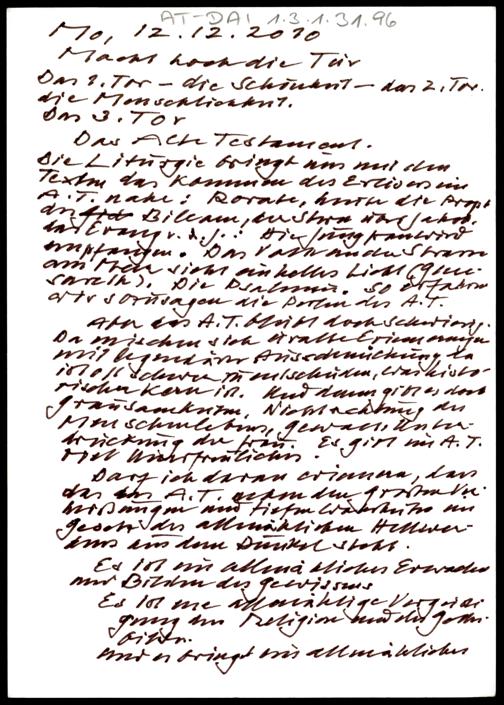 AT-DAI 1.3.1.31.96
Mo, 12.12.2010
Macht hoch die Tür
Das 1. Tor – die Schönheit – das 2. Tor.
die Menschlichkeit.
Das 3. Tor
Das Alte Testament.
Die Liturgie bringt uns mit den
Texten das Kommen des Erlösers im
A.T. nahe: Rorate, heute die Proph.
des Bileam, der Stern über Jakob.
das Evang. v. d. J.: Die Jungfrau wird
empfangen. Das Volk an den Strassen
am Meer sieht ein helles Licht (Gene-
sareth). Die Psalmen. So erfahren
wir sozusagen die Perlen des A.T.
Aber das A.T. bleibt doch schwierig.
Da mischen sich uralte Erinnerungen
mit legendärer Ausschmückung, da
ist oft schwer zu entscheiden, was histo-
rischer Kern ist. Und dann gibt es doch
Grausamkeiten, Nichtachtung des
Menschenlebens, Gewalt, Unter-
drückung der Frau. Es gibt im A.T.
viel Unerfreuliches.
Darf ich daran erinnern, dass
das A.T. neben den großen Ver-
heißungen und tiefen Wahrheiten im
Gesetz des allmählichen Hellwer-
dens aus dem Dunkel steht.
Es ist ein allmähliches Erwachen
und Bilden des Gewissens
Es ist eine allmählige Vergeisti-
gung der Religion und des Gottes-
bildes.
und es bringt ein allmähliches